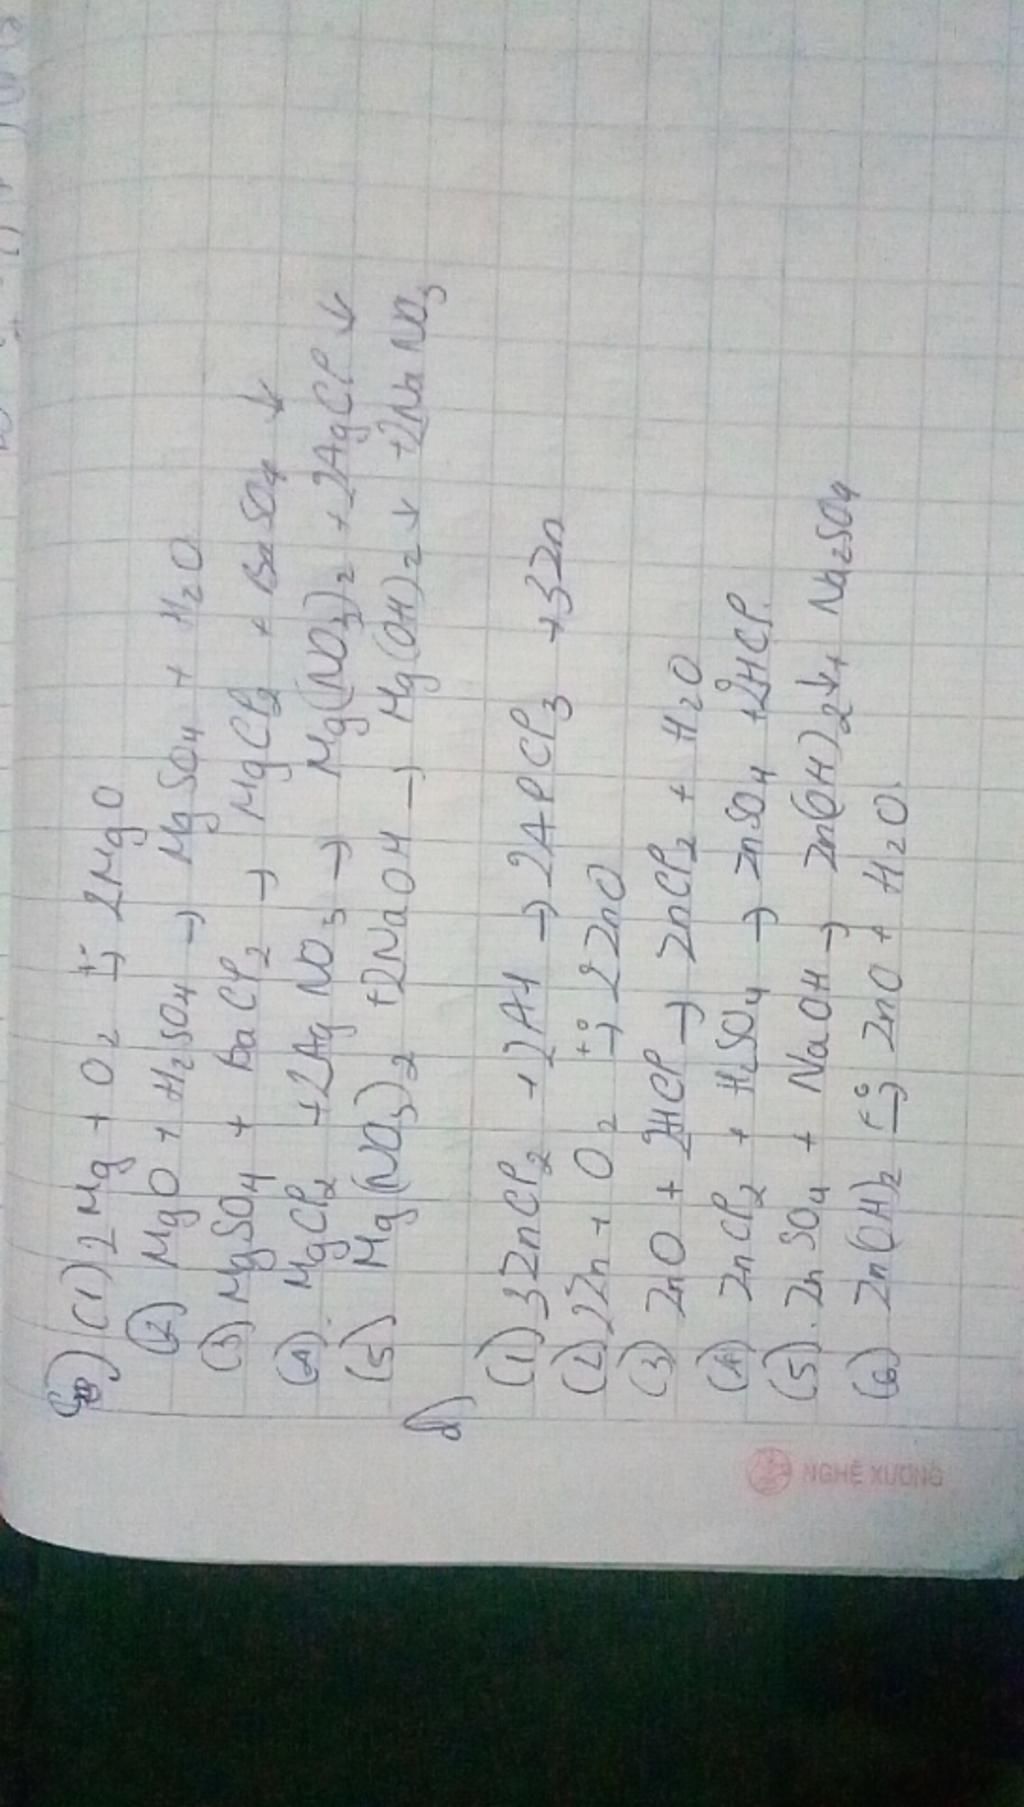 (1) 2Mg + O2 t°→ 2MgO
(2) MgO + H2SO4 → MgSO4 + H2O
(3) MgSO4 + BaCl2 → MgCl2 + BaSO4 ↓
(4) MgCl2 + 2AgNO3 → Mg(NO3)2 + 2AgCl ↓
(5) Mg(NO3)2 + 2NaOH → Mg(OH)2 ↓ + 2NaNO3
b)
(1) 3ZnCl2 + 2Al → 2AlCl3 + 3Zn
(2) 2Zn + O2 t°→ 2ZnO
(3) ZnO + 2HCl → ZnCl2 + H2O
(4) ZnCl2 + H2SO4 → ZnSO4 + 2HCl.
(5) ZnSO4 + NaOH → Zn(OH)2 ↓ + Na2SO4
(6) Zn(OH)2 t°→ ZnO + H2O.
NGHĨA XƯƠNG